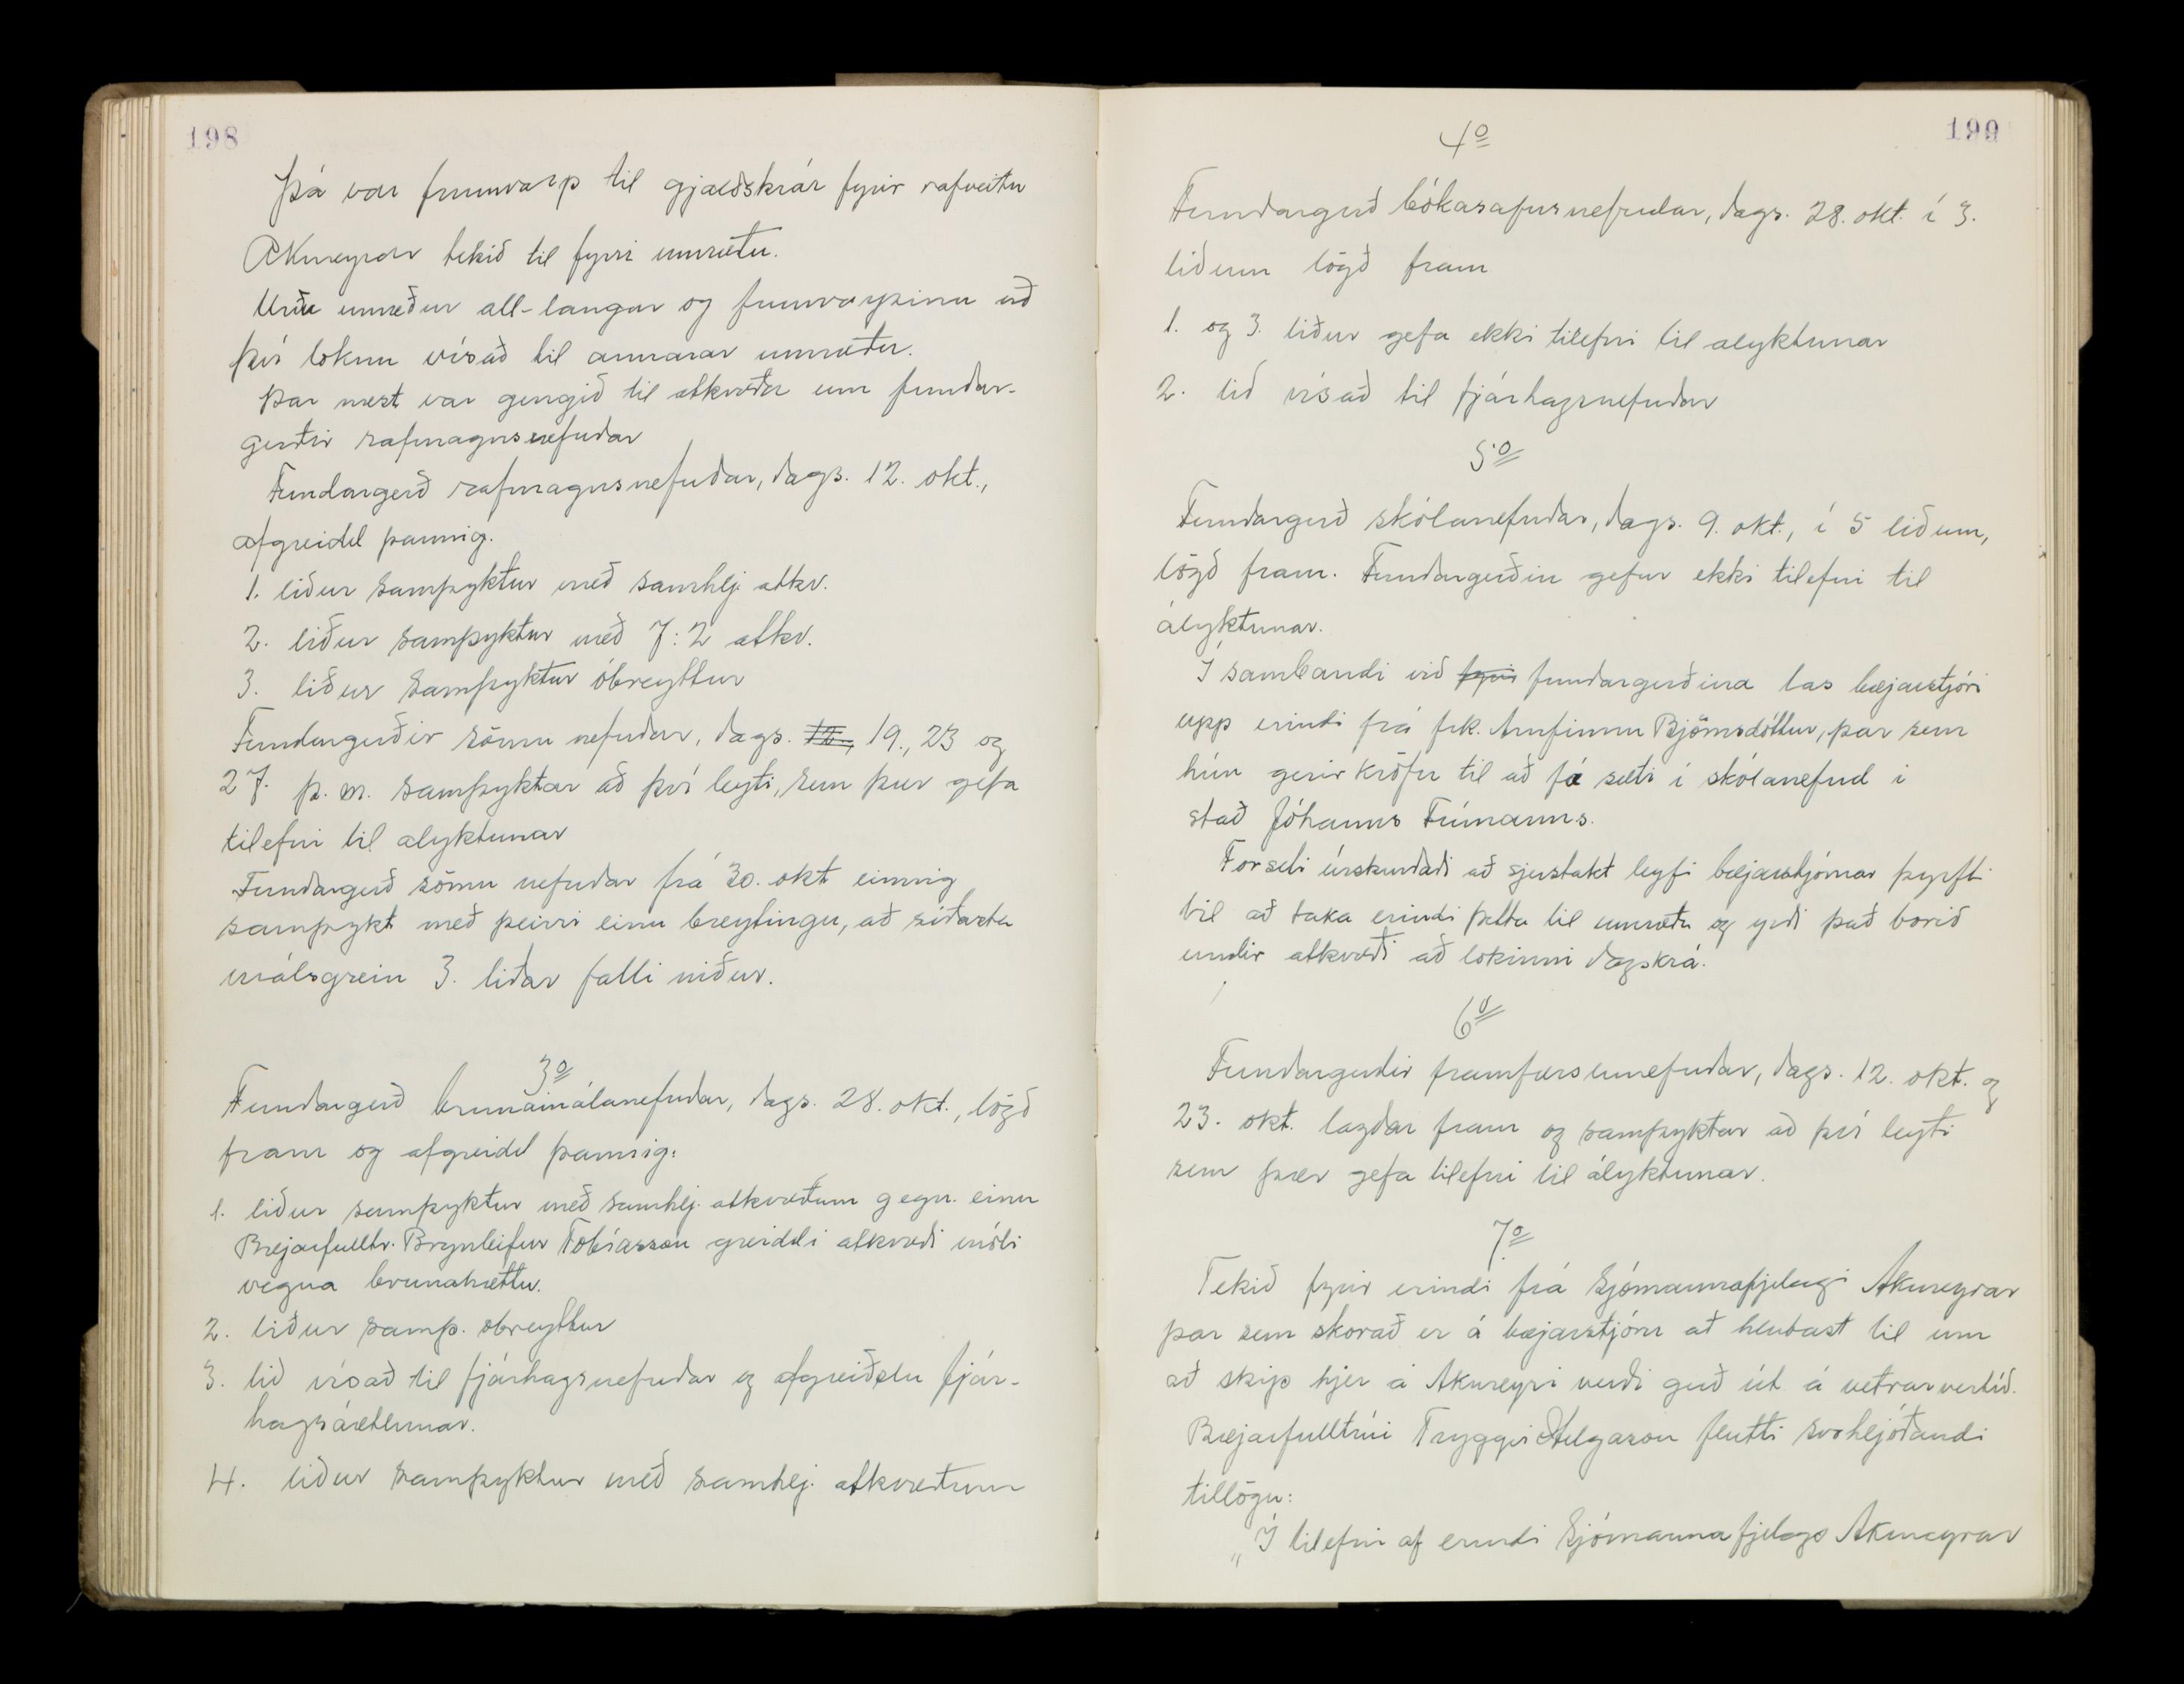 198
Þá var frumvarp til gjaldskrár fyrir rafveitu
Akureyrar tekið til fyrri umræðu.
Urðu umræður all-langar og frumvarpinu að
því loknu vísað til annarar umræðu.
Þar næst var gengið til atkvæða um fundar-
gerðir rafmagnsnefndar
Fundargerð rafmagnsnefndar, dags. 12. okt.,
afgreidd þannig.
1. liður samþyktur með samhlj. atkv.
2. liður samþyktur með 7:2 atkv.
3. liður samþyktur óbreyttur
Fundargerðir sömu nefndar, dags. 19., 23 og
27. þ. m. samþyktar að því leyti, sem þær gefa
tilefni til alyktunar
Fundargerð sömu nefndar frá 30. okt einnig
samþykt með þeirri einu breytingu, að síðasta
málsgrein 3. liðar falli niður.
3o
Fundargerð brunamálanefndar, dags. 28. okt., lögð
fram og afgreidd þannig:
1. liður samþyktur með samhlj. atkvæðum gegn einu
Bæjarfulltr. Brynleifur Tobíasson greiddi atkvæði móti
vegna brunahættu.
2. liður samþ. óbreyttur
3. lið vísað til fjárhagsnefndar og afgreiðslu fjár-
hagsáætlunar.
4. liður samþyktur með samhlj. atkvæðum
199
4o
Fundargerð bókasafnsnefndar, dags. 28. okt. í 3.
liðum lögð fram
1. og 3. liður gefa ekki tilefni til alyktunar
2. lið vísað til fjárhagsnefndar
5o
Fundargerð skólanefndar, dags. 9. okt., í 5 liðum,
lögð fram. Fundargerðin gefur ekki tilefni til
ályktunar.
Í sambandi við fyrir fundargerðina las bæjarstjóri
upp erindi frá frk. Arnfinnu Björnsdóttur, þar sem
hún gerir kröfu til að fá sæti í skólanefnd í
stað Jóhanns Frímanns.
Forseti úrskurðaði að sjerstakt leyfi bæjarstjórnar þyrfti
til að taka erindi þetta til umræðu og yrði það borið
undir atkvæði að lokinni dagskrá.
6o
Fundargerðir framfærslunefndar, dags. 12. okt. og
23. okt. lagðar fram og samþyktar að því leyti
sem þær gefa tilefni til ályktunar.
7o
Tekið fyrir erindi frá Sjómannafjelagi Akureyrar
þar sem skorað er á bæjarstjórn að hlutast til um
að skip hjer á Akureyri verði gerð út á vetrarvertíð.
Bæjarfulltrúi Tryggvi Helgason flutti svohljóðandi
tillögu:
„Í tilefni af erindi Sjómannafjelags Akureyrar